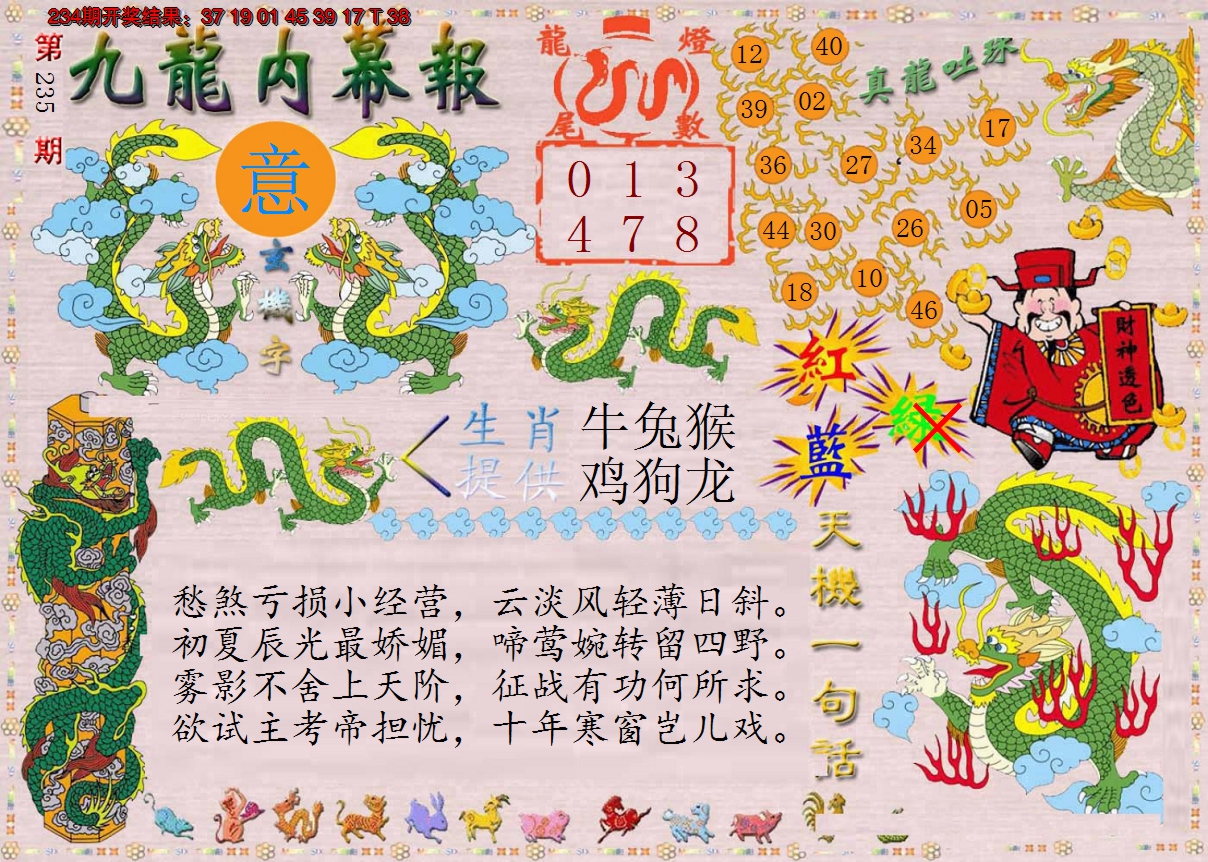 234期开奖结果：37 19 01 45 39 17 T 38
第235期
九龍内幕報
意
玄機字
龍燈
尾數
0 1 3
4 7 8
真龍吐珠
12 40
39 02
36 27 34 17
44 30 26 05
18 10 46
紅
綠
藍
財神透色
生肖 牛兔猴
提供 鸡狗龙
天機一句话
愁煞亏损小经营，云淡风轻薄日斜。
初夏辰光最娇媚，啼莺婉转留四野。
雾影不舍上天阶，征战有功何所求。
欲试主考帝担忧，十年寒窗岂儿戏。